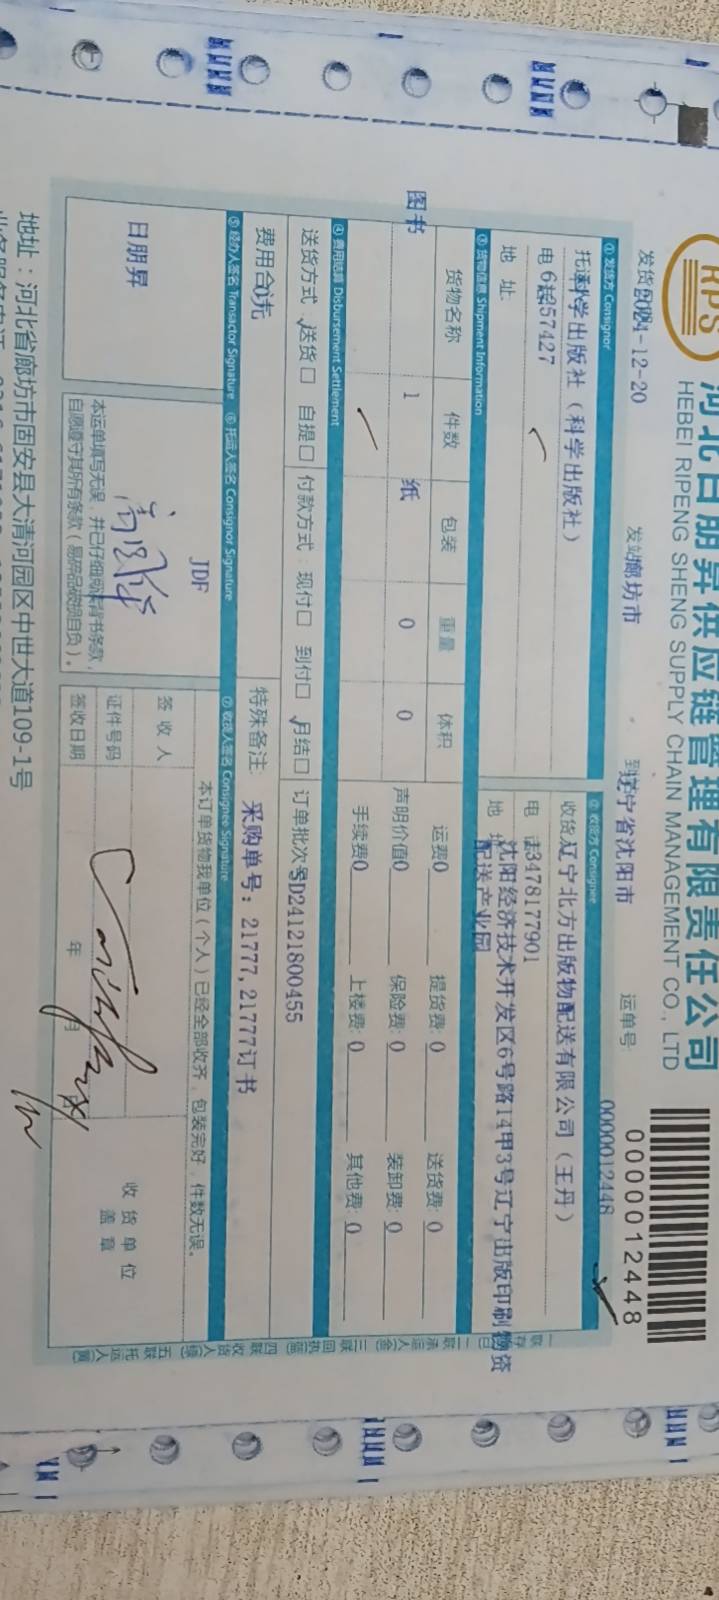 RPS
河北日朋昇供应链管理有限责任公司
HEBEI RIPENG SHENG SUPPLY CHAIN MANAGEMENT CO., LTD
0000012448
发货日期 2024-12-20 发站 廊坊市 到 辽宁省沈阳市 运单号 0000012448
① 发货方 Consignor ② 收货方 Consignee
科学出版社（科学出版社） 收货 辽宁北方出版物配送有限公司（王丹）
电话 57427 电话 13478177901
地址 地址 沈阳经济技术开发区6号路14甲3号辽宁出版印刷物资
配送产业园
③ 货物信息 Shipment Information
货物名称 件数 包装 重量 体积 运费 0 提货费: 0 送货费: 0
图书 1 纸 0 0 声明价值 0 保险费: 0 装卸费: 0
手续费 0 上楼费: 0 其他费: 0
④ 费用结算 Disbursement Settlement
送货方式: 送货☐ 自提☐ 付款方式: 现付☐ 到付☐ 月结☐ 订单批次号 SD24121800455
费用合 0元 特殊备注 采购单号: 21777,21777订书
⑤ 经办人签名 Transactor Signature ⑥ 托运人签名 Consignor Signature ⑦ 收货人签名 Consignee Signature
日朋昇
JDF
本订单货物我单位（个人）已经全部收齐, 包装完好, 件数无误。
签收人
证件号码
签收日期 年 月
收货单位
盖章
自愿遵守其所有条款（易碎品破损自负）。
地址：河北省廊坊市固安县大清河园区中世大道109-1号